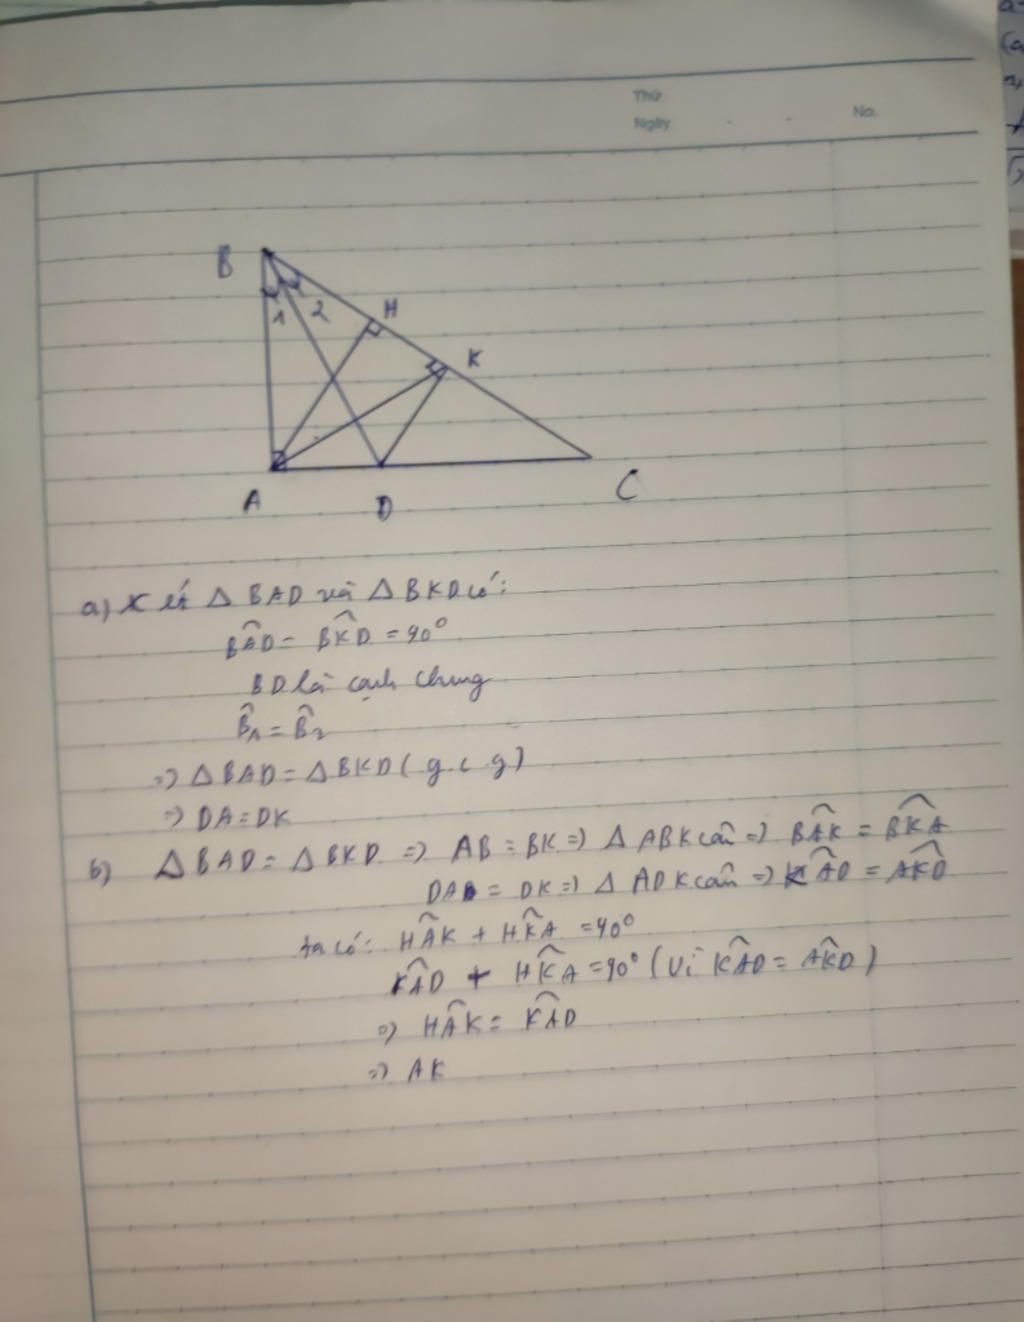 Thứ
Ngày
No.
B
1 2
H
K
A
D
C
a) Xét △ BAD và △ BKD có:
BÂD = BK̂D = 90°
BD là cạnh chung
B̂1 = B̂2
=> △ BAD = △ BKD ( g. c. g )
=> DA = DK
b) △ BAD = △ BKD => AB = BK => △ ABK cân => BÂK = BK̂A
DA = DK => △ ADK cân => KÂD = AK̂D
ta có: HÂK + HK̂A = 90°
KÂD + HK̂A = 90° ( Vì KÂD = AK̂D )
=> HÂK = KÂD
=> AK